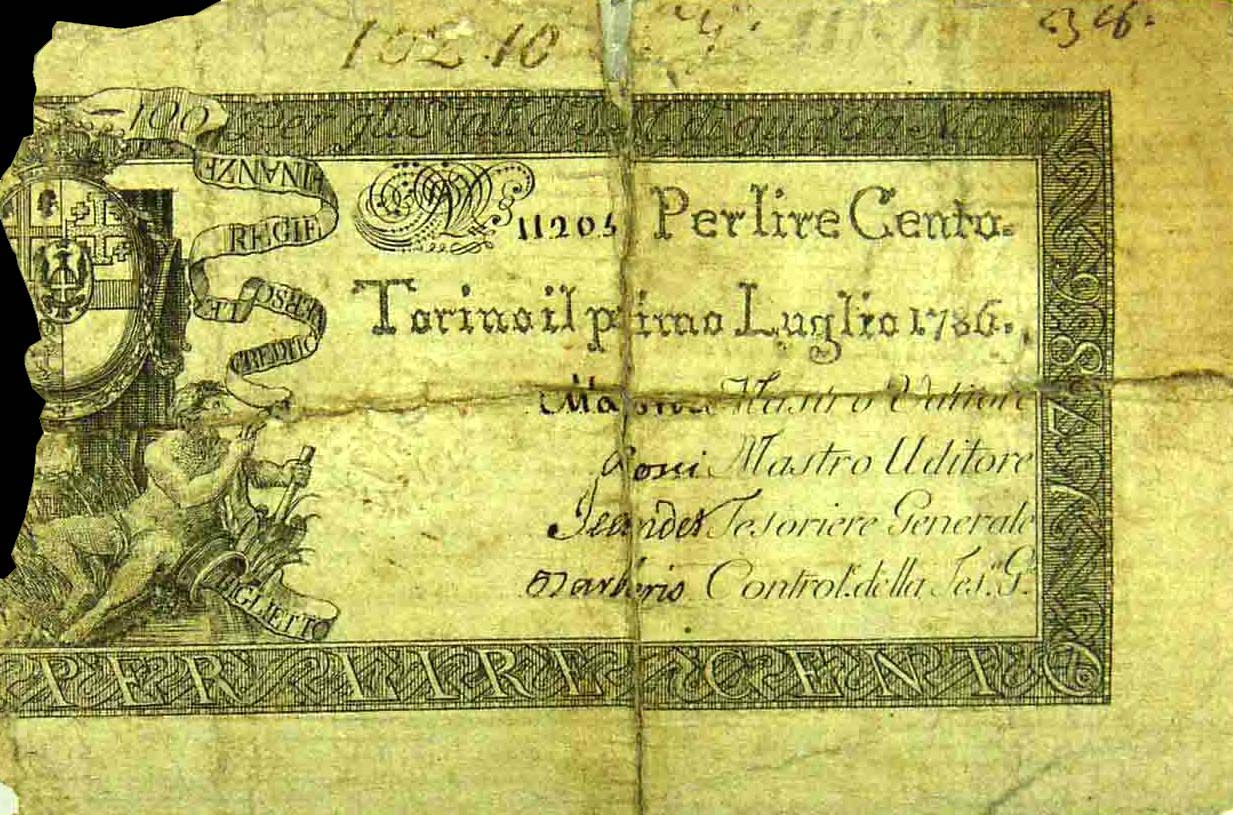 102.10
38.
100 per gli Stati di S.M. di qua da
FINANZE
REGIE
VERSO LE
CREDITO
N. 11205 Per lire Cento.
Torino il primo Luglio 1786.
Mastro Uditore
Mastro Uditore
Tesoriere Generale
Barberis Control.e della Tes.a G.
1786
BIGLIETTO
PER LIRE CENTO